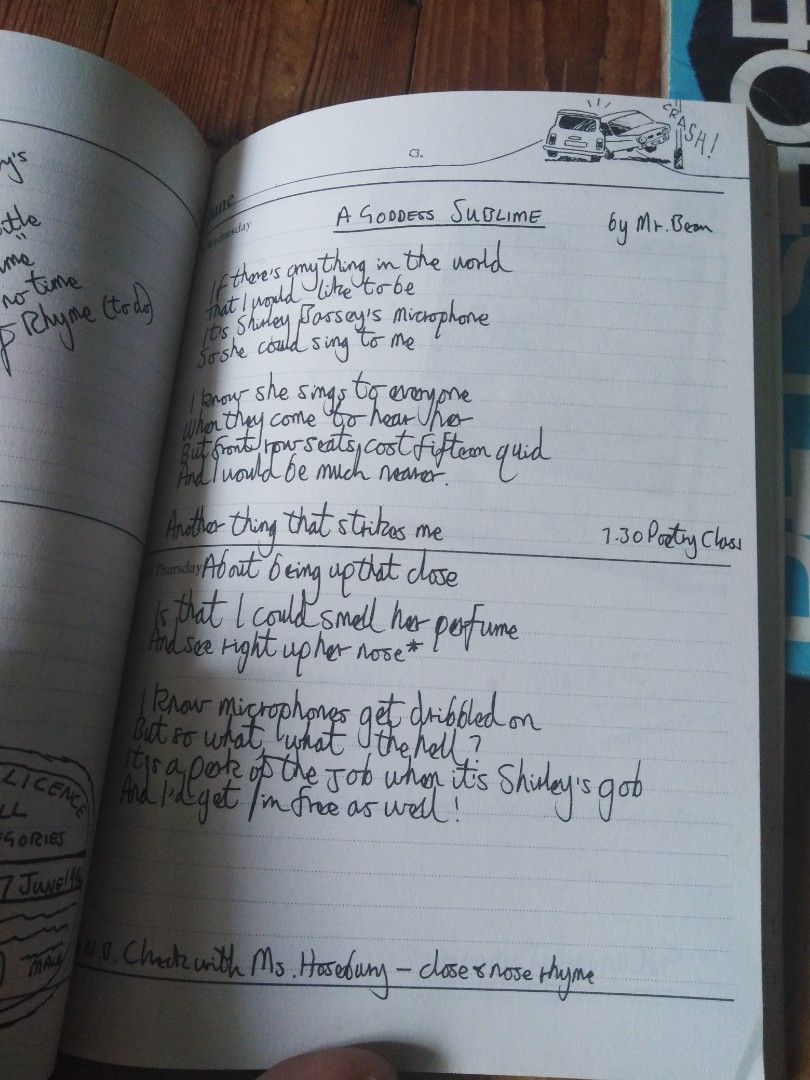 no time
Rhyme (to do)
LICENCE
7 JUNE 19
MALE
C3.
CRASH!
June
Wednesday
A GODDESS SUBLIME
by Mr. Bean
If there's anything in the world
That I would like to be
It's Shirley Bassey's microphone
So she could sing to me
I know she sings to everyone
When they come to hear her
But front row seats cost fifteen quid
And I would be much nearer.
Another thing that strikes me
7.30 Poetry Class
Thursday
About being up that close
Is that I could smell her perfume
And see right up her nose*
I know microphones get dribbled on
But so what, what the hell?
It's a perk of the job when it's Shirley's gob
And I'd get in free as well!
N.B. Check with Ms. Hosebury - close & nose rhyme